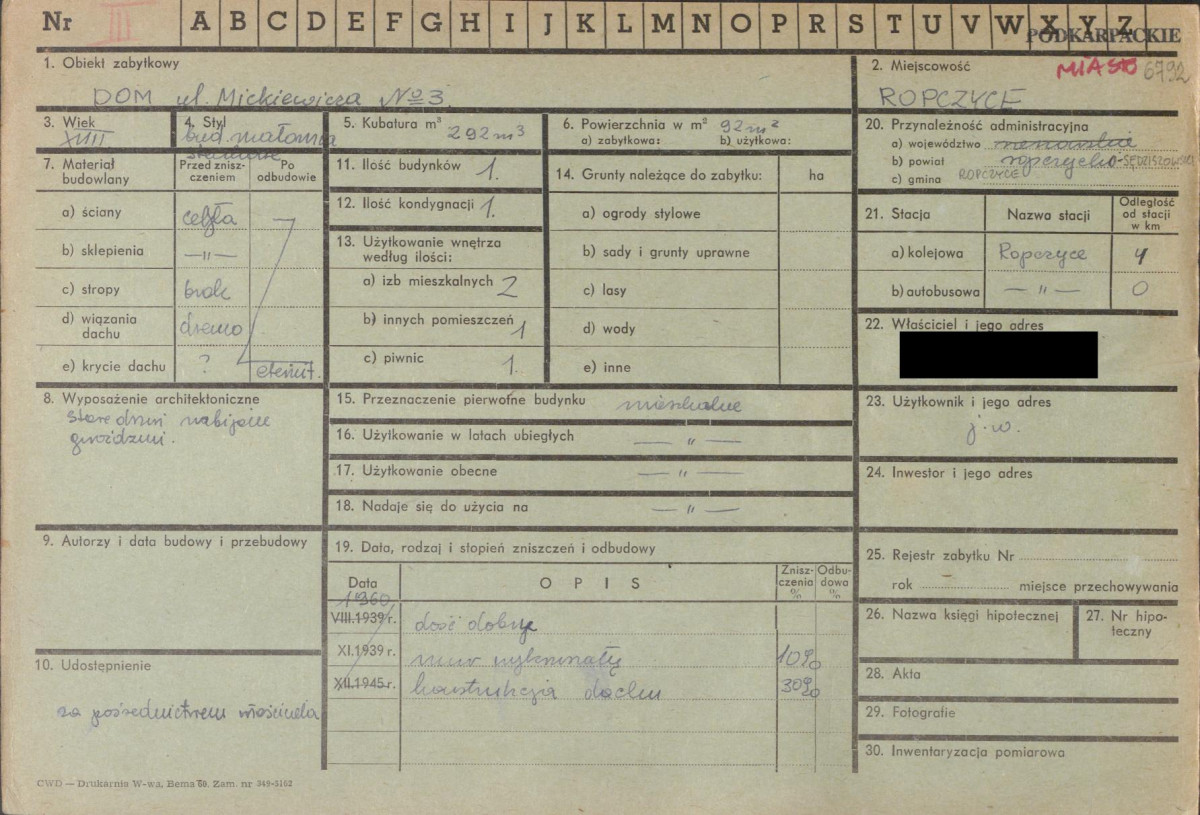 Nr III A B C D E F G H I J K L M N O P R S T U V W X Y Z
PODKARPACKIE
1. Obiekt zabytkowy
DOM ul. Mickiewicza No 3.
2. Miejscowość
MIASTO 6792
ROPCZYCE
3. Wiek
XVIII
4. Styl
bud. małomia
5. Kubatura m³ 292 m3
6. Powierzchnia w m² 92 m2
a) zabytkowa: b) użytkowa:
20. Przynależność administracyjna
a) województwo rzeszowskie
b) powiat ropczycko-SĘDZISZOWSKI
c) gmina ROPCZYCE
7. Materiał budowlany
Przed znisz-
czeniem
Po
odbudowie
a) ściany cegła
b) sklepienia — „ —
c) stropy brak
d) wiązania
dachu drewno
e) krycie dachu ? eternit.
11. Ilość budynków 1.
12. Ilość kondygnacji 1.
13. Użytkowanie wnętrza
według ilości:
a) izb mieszkalnych 2
b) innych pomieszczeń 1
c) piwnic 1.
14. Grunty należące do zabytku: ha
a) ogrody stylowe
b) sady i grunty uprawne
c) lasy
d) wody
e) inne
21. Stacja
Nazwa stacji
Odległość
od stacji
w km
a) kolejowa Ropczyce 4
b) autobusowa — „ — 0
22. Właściciel i jego adres
8. Wyposażenie architektoniczne
Stare drzwi nabijane
gwoździmi.
15. Przeznaczenie pierwotne budynku mieszkalne
16. Użytkowanie w latach ubiegłych — „ —
17. Użytkowanie obecne — „ —
18. Nadaje się do użycia na — „ —
23. Użytkownik i jego adres
j.w.
24. Inwestor i jego adres
9. Autorzy i data budowy i przebudowy
19. Data, rodzaj i stopień zniszczeń i odbudowy
Data
OPIS
Znisz-
czenia
%
Odbu-
dowa
%
1960
VIII.1939 r. dość dobry
XI.1939 r. mur 10%
XII.1945 r. konstrukcja dachu 30%
25. Rejestr zabytku Nr
rok miejsce przechowywania
26. Nazwa księgi hipotecznej
27. Nr hipo-
teczny
10. Udostępnienie
za pośrednictwem właściciela
28. Akta
29. Fotografie
30. Inwentaryzacja pomiarowa
CWD — Drukarnia W-wa, Bema 60. Zam. nr 349-5162